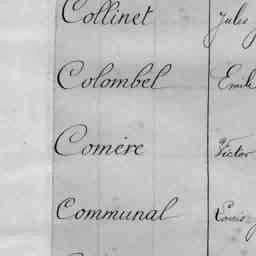 Collinet Jules
Colombel Emile
Comère Victor
Communal Louis